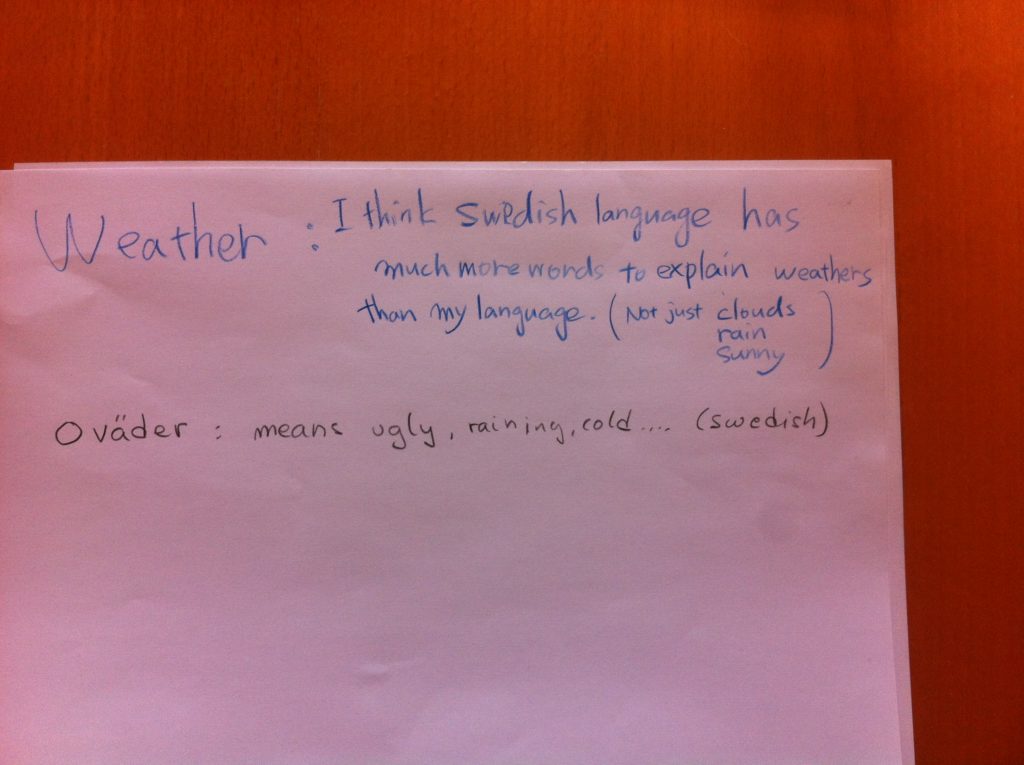 Weather : I think swedish language has
much more words to explain weathers
than my language. (Not just clouds
rain
sunny)
Oväder : means ugly, raining, cold.... (swedish)